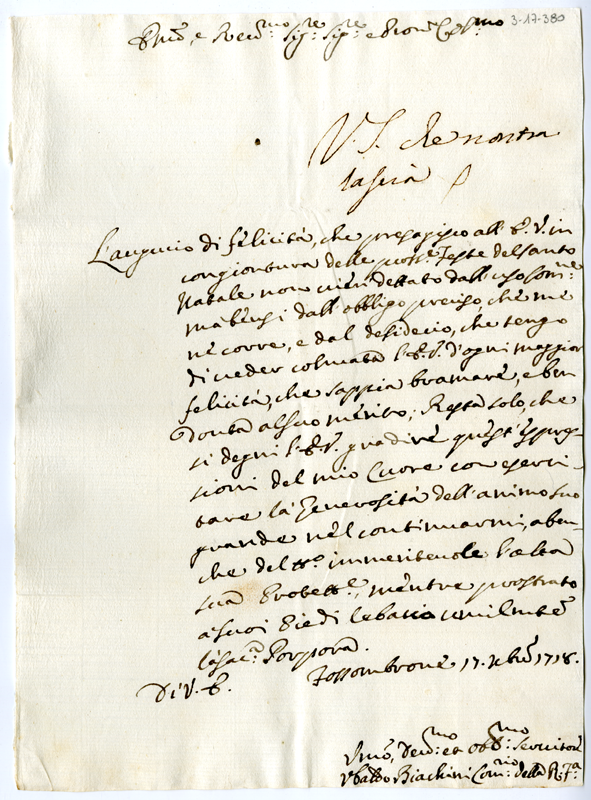 3-17-380
Em̃o, e Rev:mo Sig:re Sig:re e Pron Col:mo
V. S. che nonsa
lascia
L'augurio di felicità, che presagisco all' E. V. in
congiontura delle pross:e Feste del santo
Natale non vien dettato dall' uso com:ne
mà bensi dall' obbligo preciso, che me
ne corre, e dal desiderio, che tengo
di veder colmata l' E. V. d'ogni maggior
felicità, che sappia bramare, e ben
douta al suo merito; Resta solo, che
si degni l' E. V. gradire questi espres-
sioni del mio Cuore con eserci-
tare la Generosità dell' animo suo
grande nel continuarmi, aben-
che del tt:o immeritevole l'alta
sua Protett:e, mentre prostrato
a suoi Piedi le bacio umilmte
la sac:a Porpora.
Di V. E.
Fossombrone 17. Xbre 1718.
Vmo, Deu:mo et Obb:mo Seruitore
Vbaldo Biachini Com:rio della R: F:a